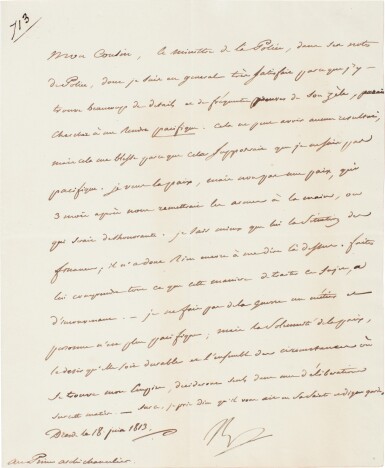 713
Mon Cousin, le ministre de la Police, dans ses notes
de Police, dont je suis en general très satisfait parce que j'y
trouve beaucoup de details et de fréquentes preuves de son zèle, paraît
chercher à me rendre pacifique. Cela ne peut avoir aucun resultat,
mais cela me blesse parce que cela supposerait que je ne suis pas
pacifique. je veux la paix, mais non pas une paix qui
3 mois après nous remettrait les armes à la main, ou
qui serait deshonorante. je sais mieux que lui la Situation des
finances, il n'a donc rien à me dire là dessus. faites
lui comprendre tout ce que cette manière de traiter ce sujet a
d'inconvenant. — je ne fais pas de la guerre un métier et
personne n'est plus pacifique, mais la Solennité de la paix,
le desir qu'elle soit durable et l'ensemble des circonstances où
se trouve mon Empire, decideront seuls de mes délibérations
sur cette matière. — Sur ce, je prie Dieu qu'il vous ait en sa sainte et digne garde,
Dresde le 18 juin 1813.
au Prince archichancelier